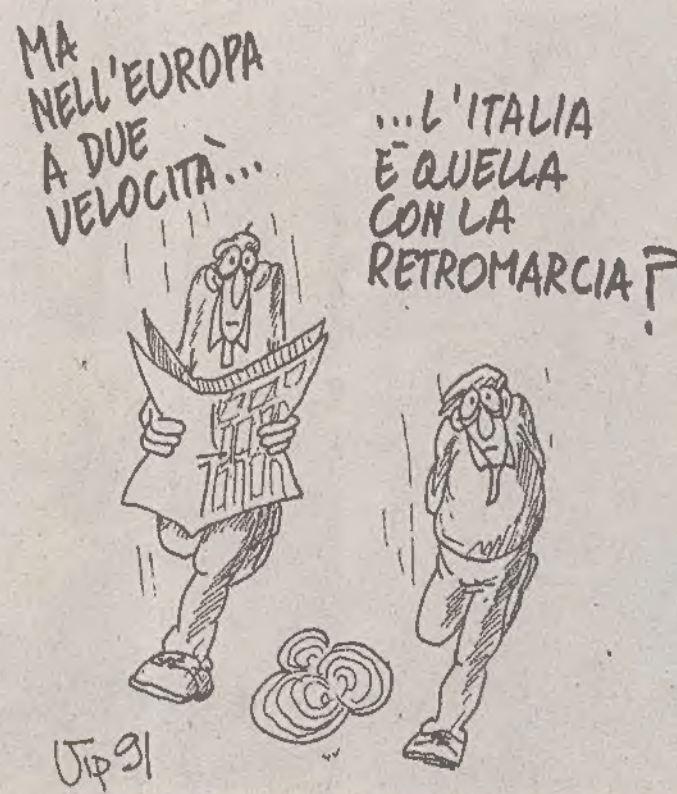 MA
NELL'EUROPA
A DUE
VELOCITÀ...
...L'ITALIA
È QUELLA
CON LA
RETROMARCIA?
Vip 91